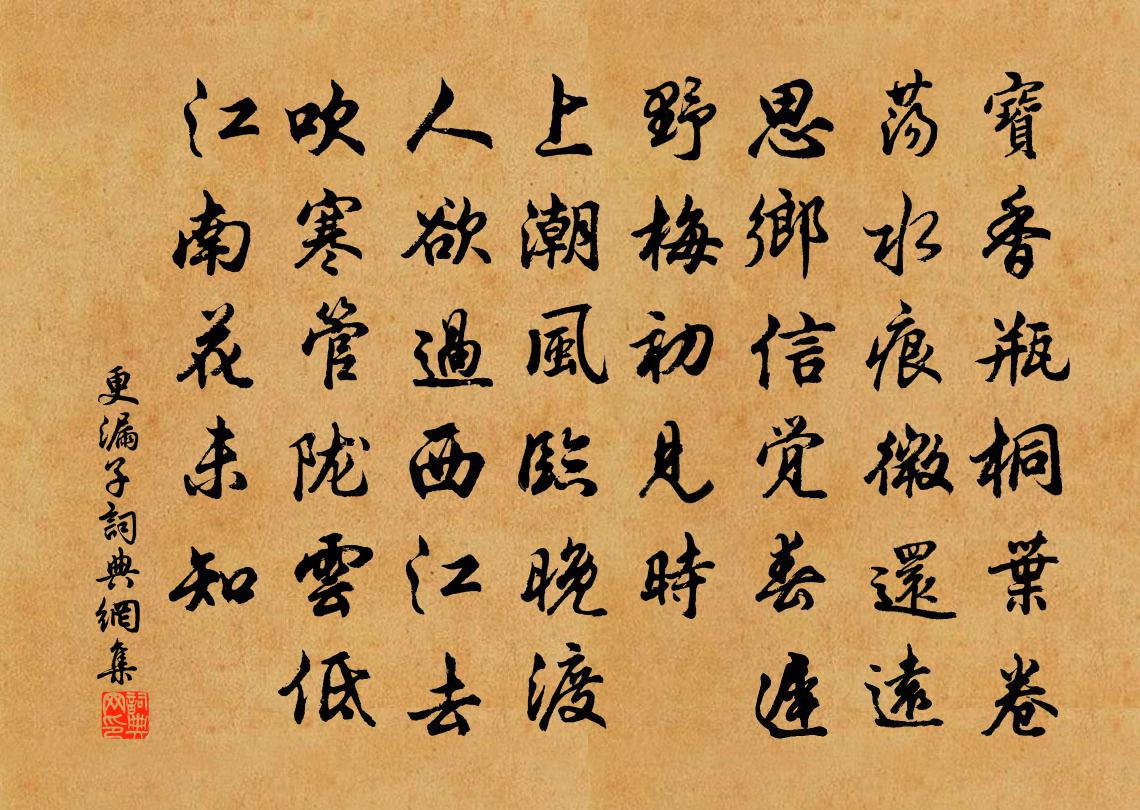 寶香瓶桐葉卷
蕩水痕微還遠
思鄉信觉春遲
野梅初見時
上潮風臨晚渡
人欲過西江去
吹寒管陇雲低
江南花未知
更漏子詞典網集
詞典
网印